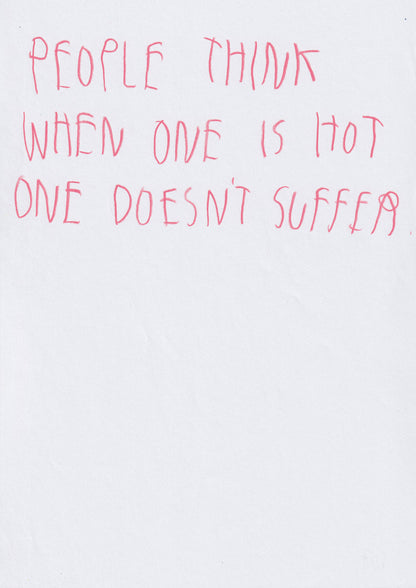 PEOPLE THINK
WHEN ONE IS HOT
ONE DOESN'T SUFFER